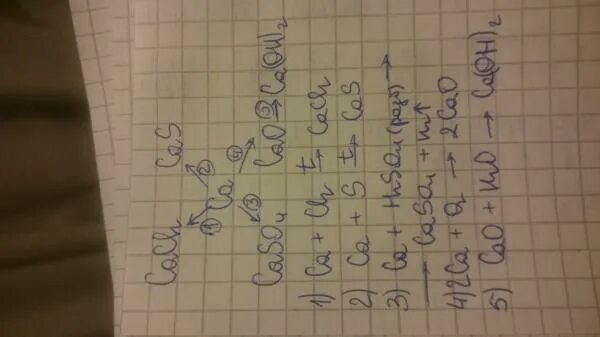 CaCl₂ CaS
① ②
Ca ④
③ ⑤
CaSO₄ CaO → Ca(OH)₂
1) Ca + Cl₂ t→ CaCl₂
2) Ca + S t→ CaS
3) Ca + H₂SO₄(разб) →
→ CaSO₄ + H₂↑
4) 2Ca + O₂ → 2CaO
5) CaO + H₂O → Ca(OH)₂